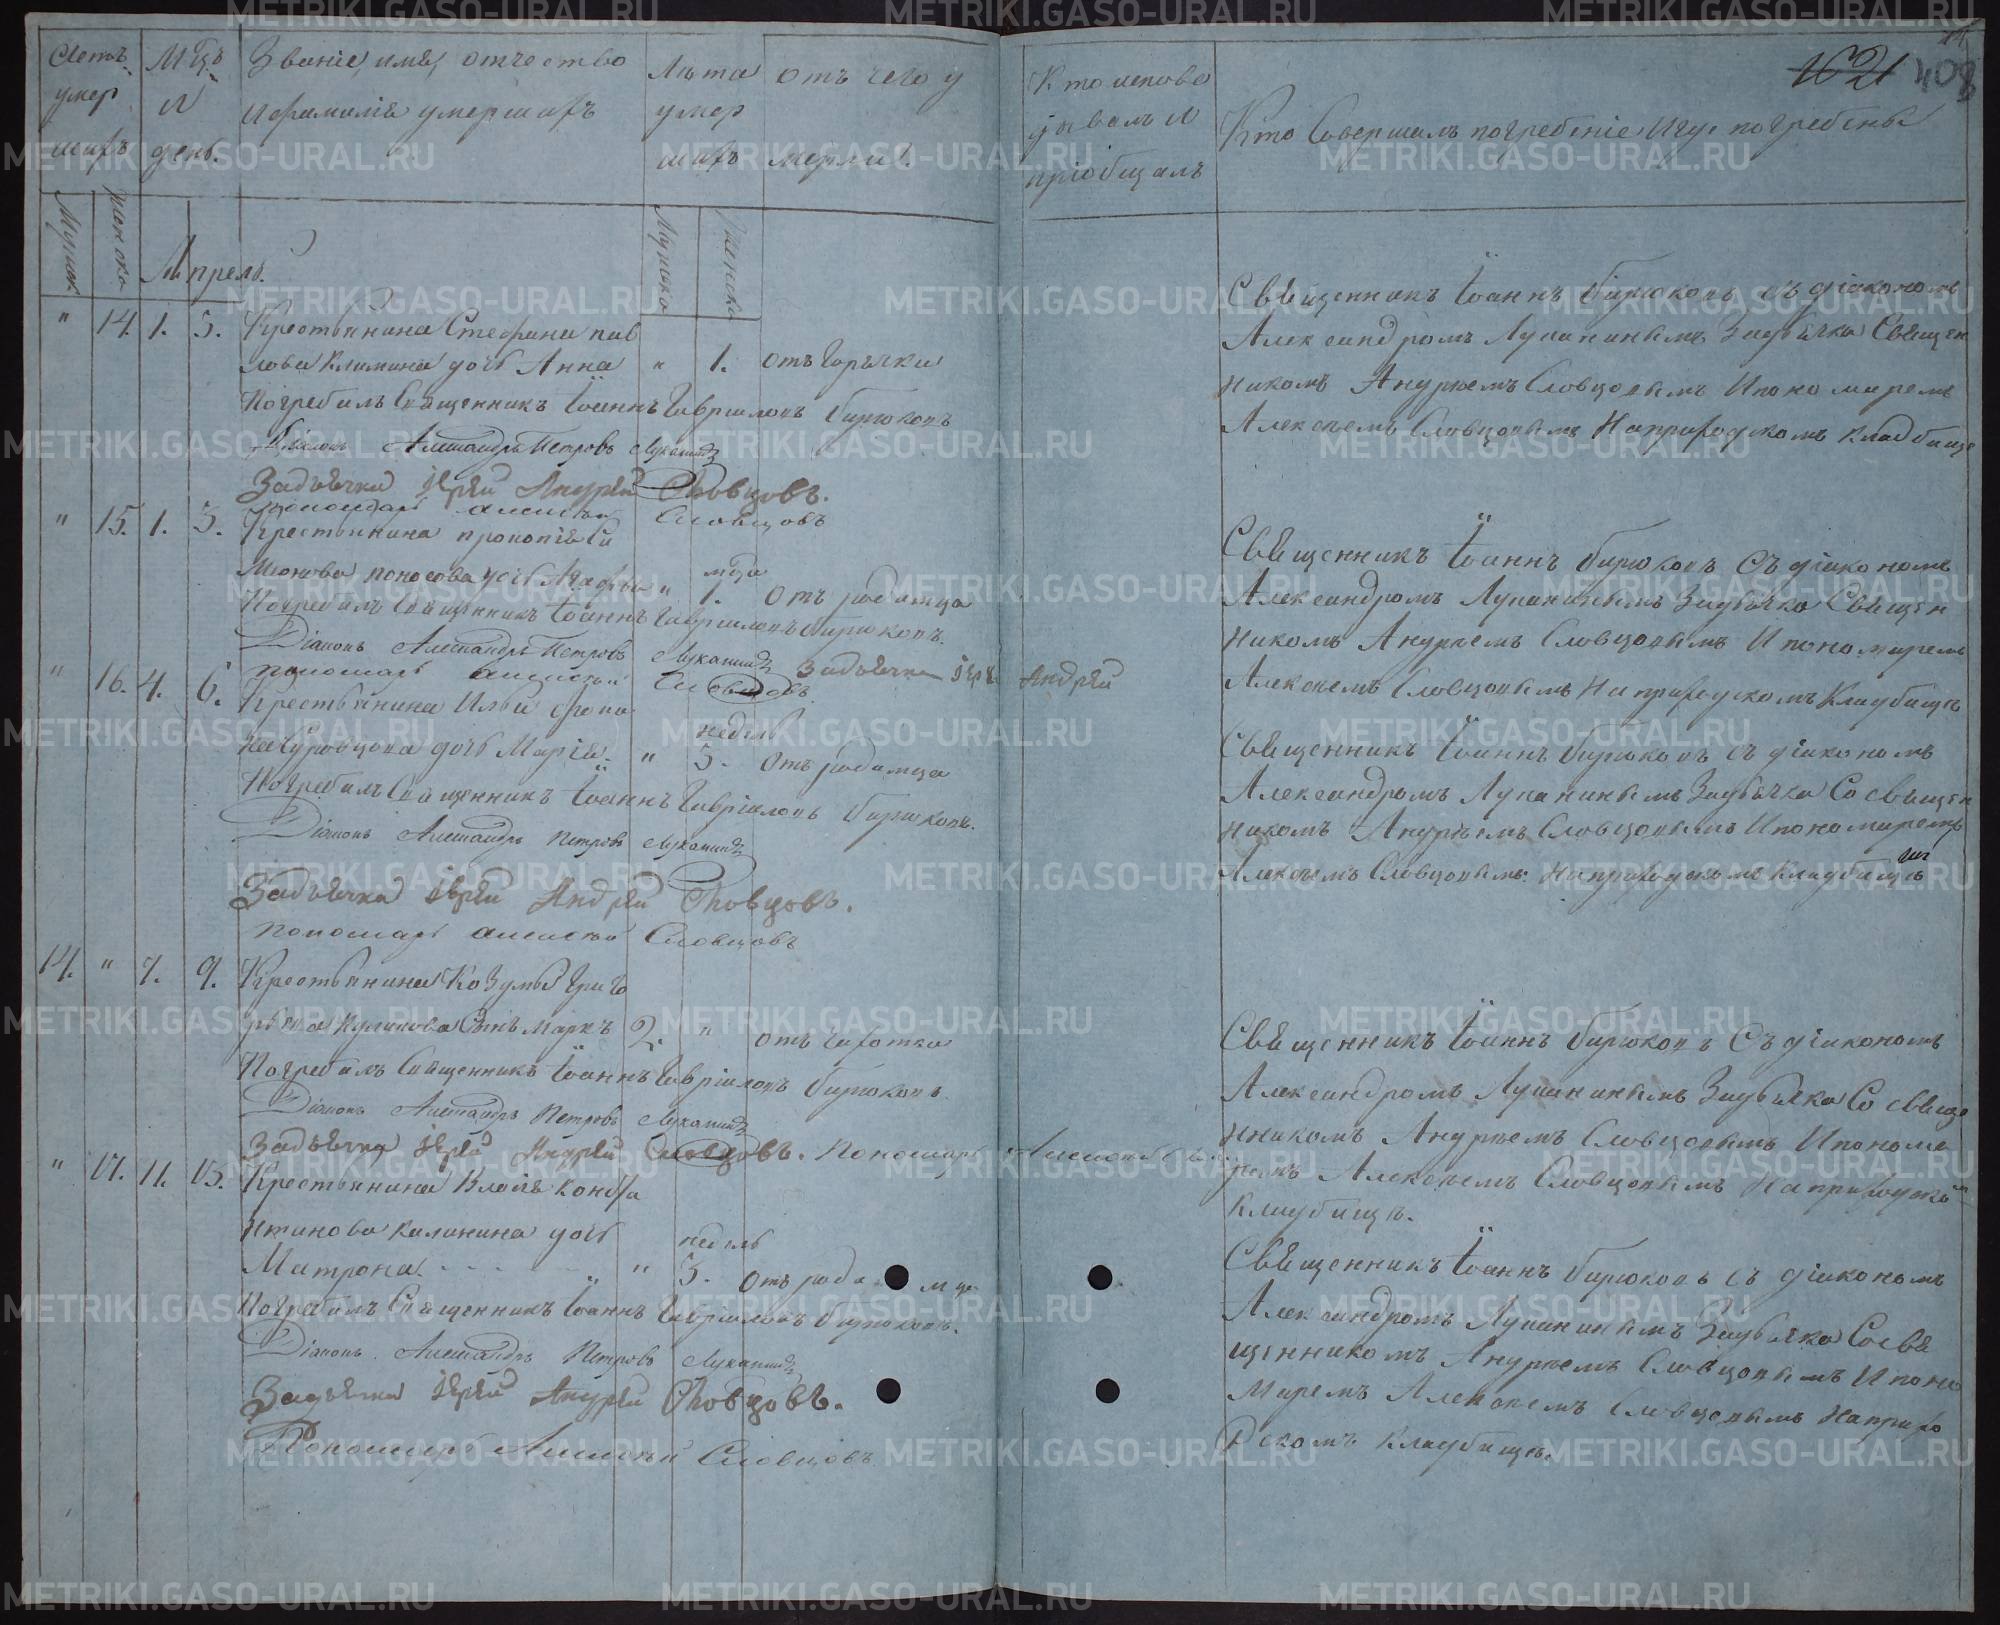 Счетъ умер шихъ
Мужск.
женско
Мцъ и день.
Званіе, имя, отчество
и фамилія умершихъ
Лѣта умер шихъ
Мужска
Женска
отъ чего у
мерли.
Кто испове
дывалъ и
пріобщалъ
Кто Совершалъ погребеніе и гдѣ погребены
1621
408
Апрель.
" 14. 1. 3. Крестьянина Стефана Пав
лова Климина дочь Анна " 1. отъ Горячки
Погребалъ Священникъ Іоаннъ Гавріиловъ Бирюковъ
Діаконъ Александръ Петровъ Лукананъ
Задьячка Іерей Андрей Словцовъ.
Пономарь Алексѣй Словцовъ
Священникъ Іоаннъ Бирюковъ съ діакономъ
Александромъ Лукининымъ Задьячка Священ
никомъ Андреемъ Словцовымъ И пономаремъ
Алексѣемъ Словцовымъ На приходскомъ кладбище
" 15. 1. 3. Крестьянина Прокопія Си
монова Поносова дочь Агафья " мѣца 1. Отъ родимца
Погребалъ Священникъ Іоаннъ Гавріиловъ Бирюковъ.
Діаконъ Александръ Петровъ Лукананъ
Задьячка Іерей Андрей
пономарь Алексѣй Словцовъ
Священникъ Іоаннъ Бирюковъ Съ діакономъ
Александромъ Лукининымъ Задьячка Священ
никомъ Андреемъ Словцовымъ И пономаремъ
Алексѣемъ Словцовымъ На приходскомъ Кладбищѣ
" 16. 4. 6. Крестьянина Ильи
Суровцова дочь Марія. " недель 5. Отъ родимца
Погребалъ Священникъ Іоаннъ Гавріиловъ Бирюковъ.
Діаконъ Александръ Петровъ Лукананъ
Задьячка Іерей Андрей Словцовъ.
пономарь Алексѣй Словцовъ
Священникъ Іоаннъ Бирюковъ съ діакономъ
Александромъ Лукининымъ Задьячка Со священ
никомъ Андреемъ Словцовымъ И пономаремъ
Алексѣемъ Словцовымъ На приходскомъ Кладбищѣ
14. " 7. 9. Крестьянина Козьмы Григо
рьева Куликова Сынъ Маркъ 2. " отъ Чахотки
Погребалъ Священникъ Іоаннъ Гавріиловъ Бирюковъ.
Діаконъ Александръ Петровъ Лукананъ
Задьячка Іерей Андрей Словцовъ. Пономарь Алексѣй
Священникъ Іоаннъ Бирюковъ Съ діакономъ
Александромъ Лукининымъ Задьячка Со свяще
нникомъ Андреемъ Словцовымъ И понома
ремъ Алексѣемъ Словцовымъ На приходскомъ
Кладбищѣ.
" 17. 11. 13. Крестьянина Власа Конста
нтинова Калинина дочь
Матрона. " недель 3. Отъ родимца
Погребалъ Священникъ Іоаннъ Гавріиловъ Бирюковъ.
Діаконъ Александръ Петровъ Лукананъ
Задьячка Іерей Андрей Словцовъ.
Пономарь Алексѣй Словцовъ
Священникъ Іоаннъ Бирюковъ съ діакономъ
Александромъ Лукининымъ Задьячка Со свя
щенникомъ Андреемъ Словцовымъ И поно
маремъ Алексѣемъ Словцовымъ На прихо
дскомъ кладбищѣ.
METRIKI.GASO-URAL.RU